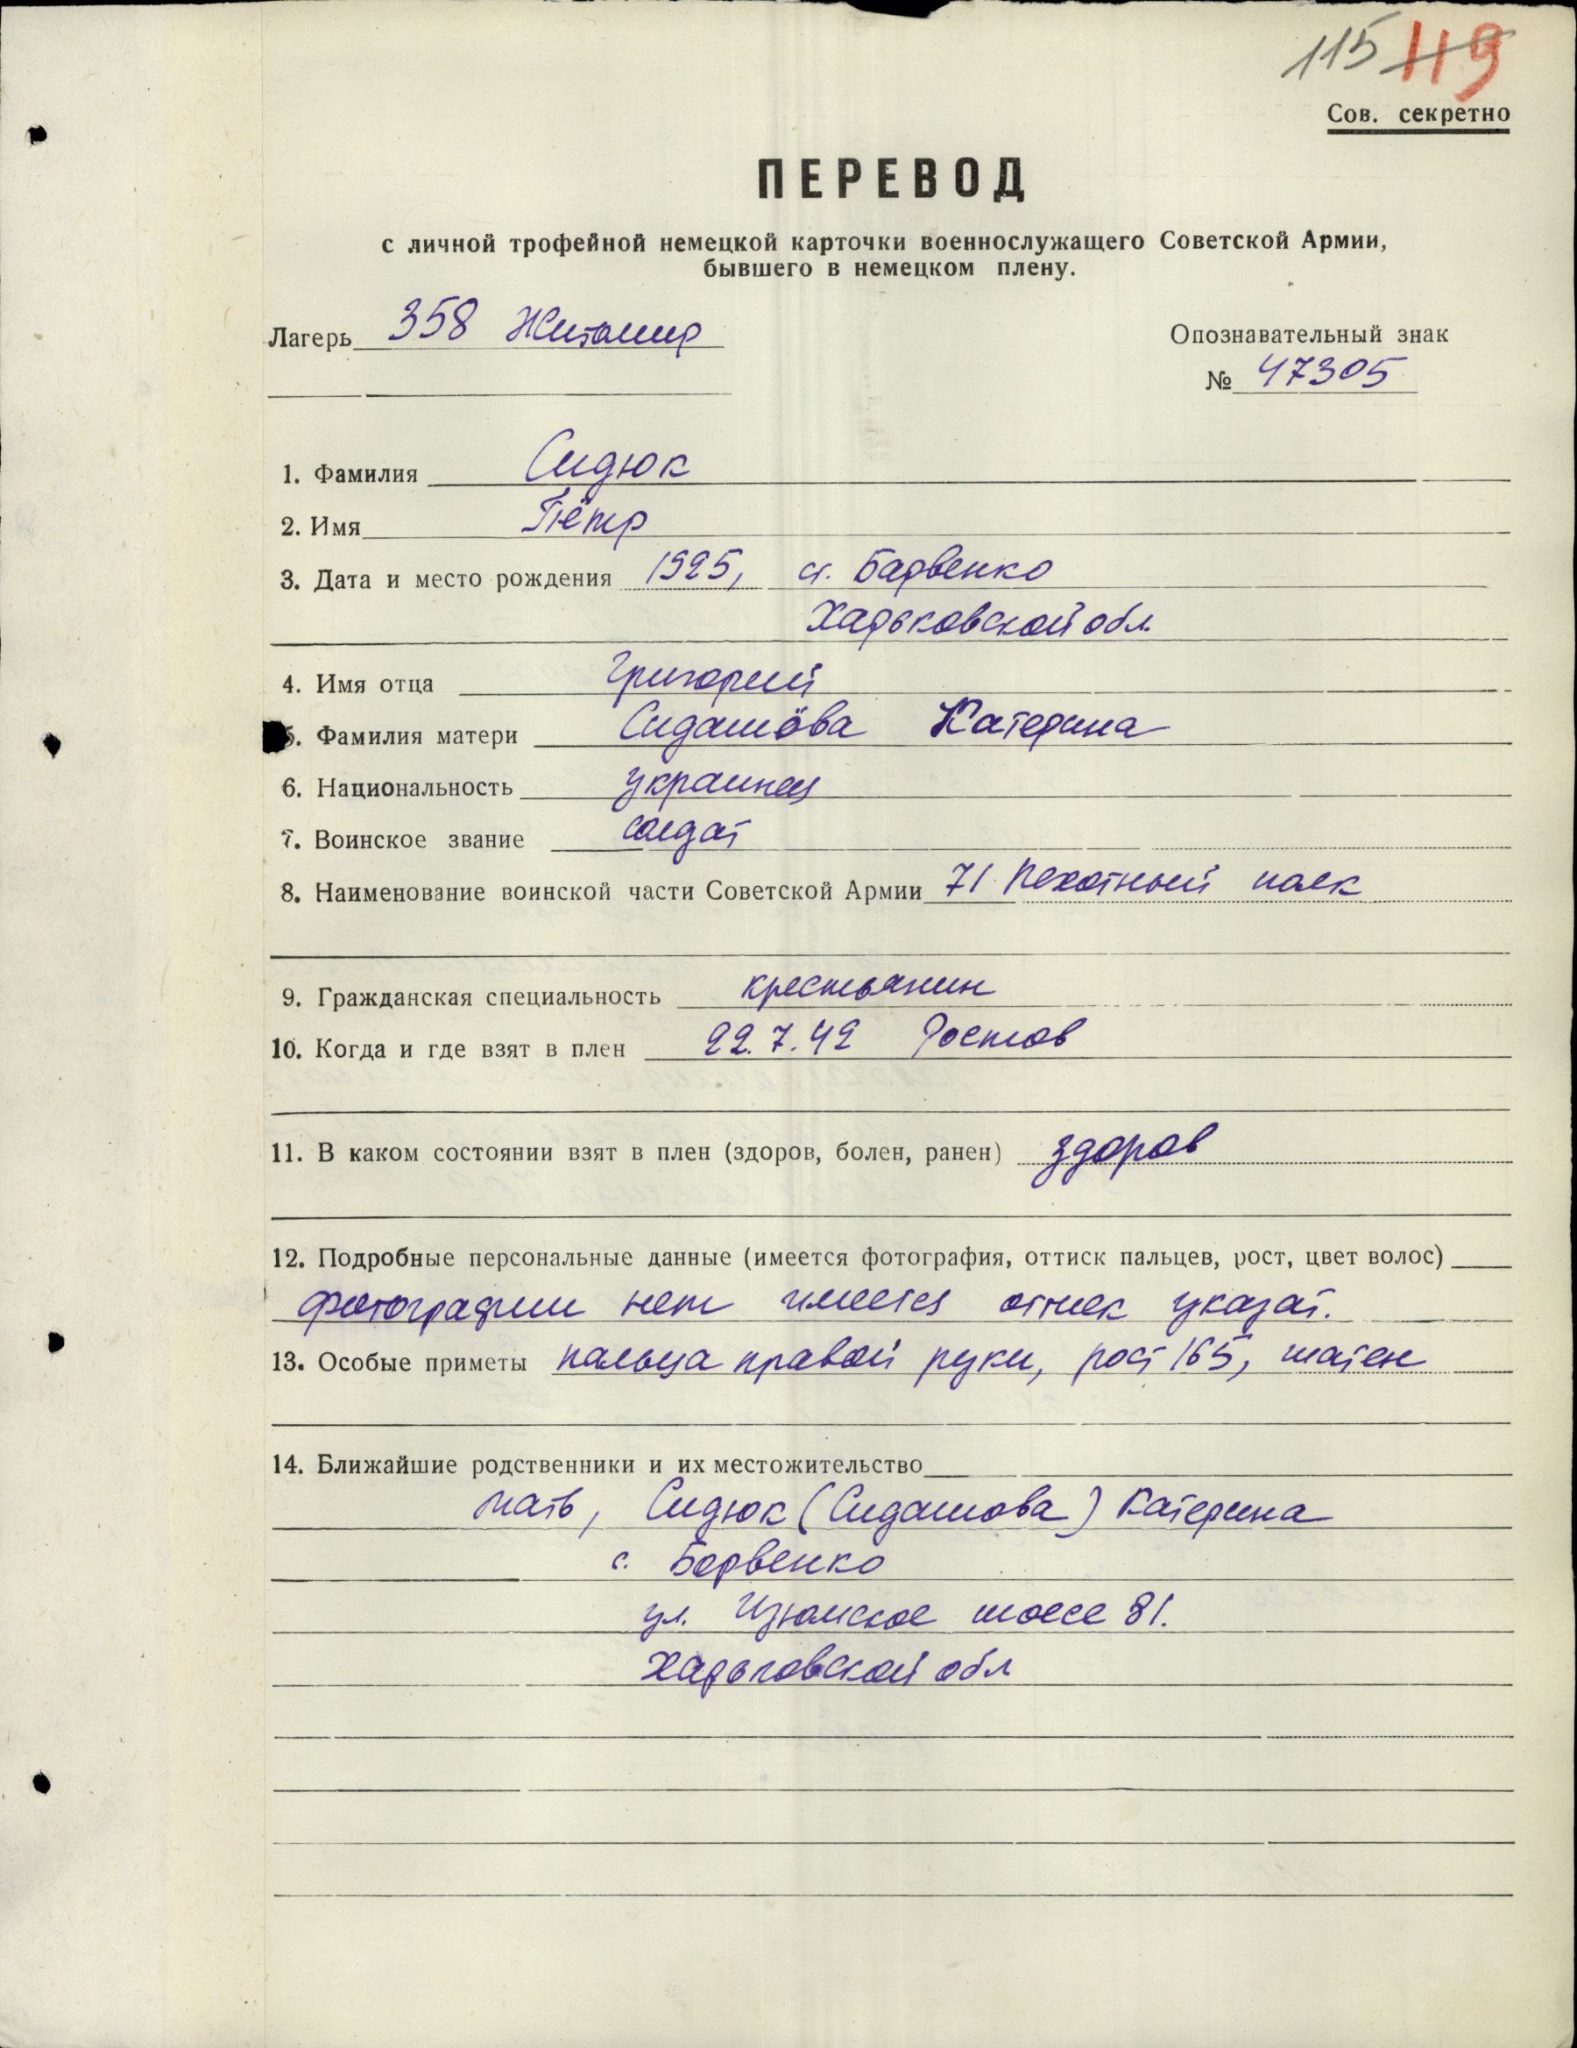 115 119
Сов. секретно
ПЕРЕВОД
с личной трофейной немецкой карточки военнослужащего Советской Армии,
бывшего в немецком плену.
Лагерь 358 Житомир
Опознавательный знак
№ 47305
1. Фамилия Сидюк
2. Имя Пётр
3. Дата и место рождения 1925, ст. Барвенко
Харьковской обл.
4. Имя отца Григорий
5. Фамилия матери Сидашова Катерина
6. Национальность украинец
7. Воинское звание солдат
8. Наименование воинской части Советской Армии 71 пехотный полк
9. Гражданская специальность крестьянин
10. Когда и где взят в плен 22.7.42 Ростов
11. В каком состоянии взят в плен (здоров, болен, ранен) здоров
12. Подробные персональные данные (имеется фотография, оттиск пальцев, рост, цвет волос)
фотографии нет имеется оттиск указат.
13. Особые приметы пальца правой руки, рост 165, шатен
14. Ближайшие родственники и их местожительство
мать, Сидюк (Сидашова) Катерина
с. Барвенко
ул. Изюмское шоссе 81.
Харьковской обл